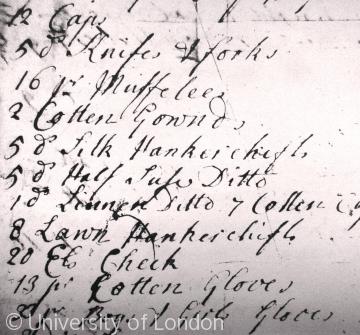 12 Caps
5 d° Knifes & forks
16 pr Muffelees
2 Cotten Gownds
5 d° Silk Hankerchiefs
5 d° Half Ditto
1 d° Linnen Ditto 7 Cotten
8 Lawn Hankerchiefs
20 Els Check
13 pr Cotten Gloves
pr Girls Gloves
© University of London